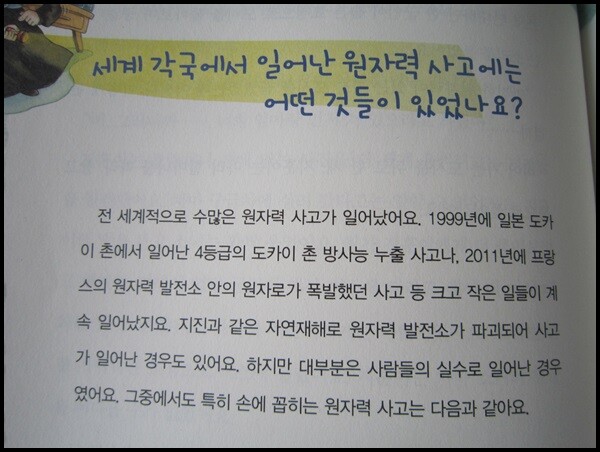 세계 각국에서 일어난 원자력 사고에는
어떤 것들이 있었나요?
전 세계적으로 수많은 원자력 사고가 일어났어요. 1999년에 일본 도카
이 촌에서 일어난 4등급의 도카이 촌 방사능 누출 사고나, 2011년에 프랑
스의 원자력 발전소 안의 원자로가 폭발했던 사고 등 크고 작은 일들이 계
속 일어났지요. 지진과 같은 자연재해로 원자력 발전소가 파괴되어 사고
가 일어난 경우도 있어요. 하지만 대부분은 사람들의 실수로 일어난 경우
였어요. 그중에서도 특히 손에 꼽히는 원자력 사고는 다음과 같아요.